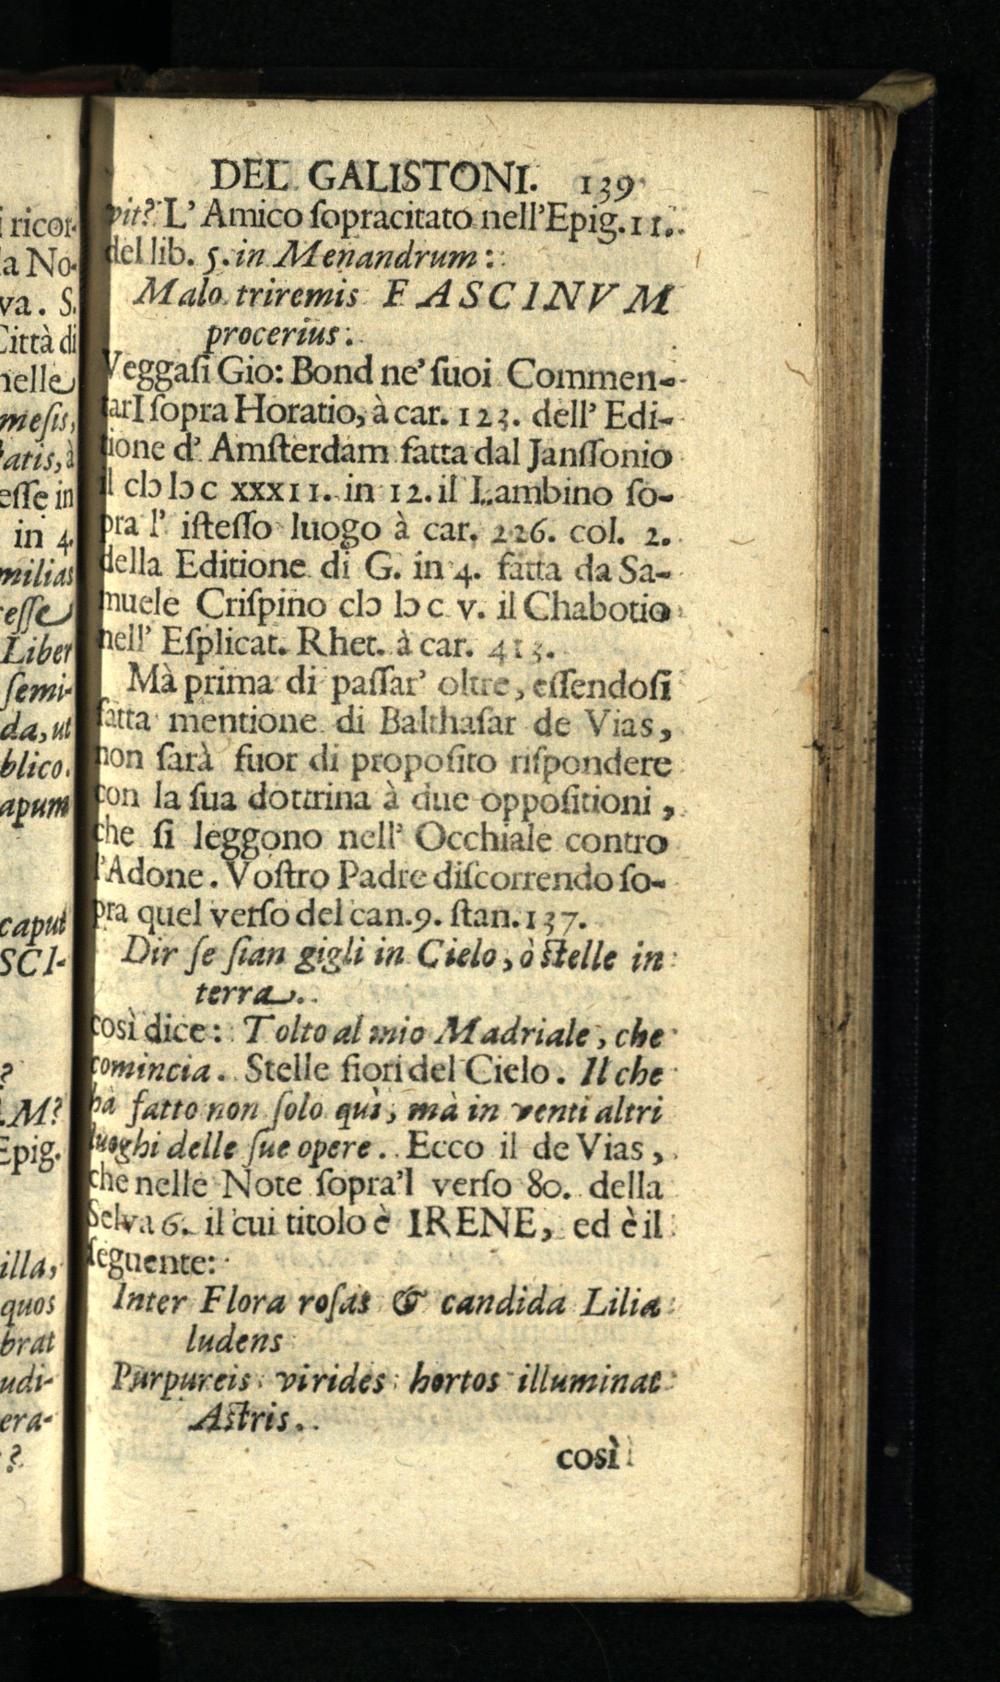 DEL GALISTONI. 139
vit? L' Amico ſopracitato nell'Epig. 11.
del lib. 5. in Menandrum:
Malo triremis FASCINVM
procerius.
Veggaſi Gio: Bond ne' ſuoi Commen-
tarI ſopra Horatio, à car. 123. dell' Edi-
tione d' Amſterdam fatta dal Janſſonio
il cIↄ Iↄ c xxxii. in 12. il Lambino ſo-
pra l' iſteſſo luogo à car. 226. col. 2.
della Editione di G. in 4. fatta da Sa-
muele Criſpino cIↄ Iↄ c v. il Chabotio
nell' Eſplicat. Rhet. à car. 413.
Mà prima di paſſar' oltre, eſſendoſi
fatta mentione di Balthaſar de Vias,
non ſarà fuor di propoſito riſpondere
con la ſua dottrina à due oppoſitioni,
che ſi leggono nell' Occhiale contro
l'Adone. Voſtro Padre diſcorrendo ſo-
pra quel verſo del can. 9. ſtan. 137.
Dir ſe ſian gigli in Cielo, ò ſtelle in
terra.
così dice: Tolto al mio Madriale, che
comincia. Stelle fiori del Cielo. Il che
hà fatto non ſolo quì, mà in venti altri
luoghi delle ſue opere. Ecco il de Vias,
che nelle Note ſopra'l verſo 80. della
Selva 6. il cui titolo è IRENE, ed è il
ſeguente:
Inter Flora roſas & candida Lilia
ludens
Purpureis virides hortos illuminat
Aſtris.
così
i ricor-
la No-
va. S.
Città di
nelle
meſis,
atis, à
eſſe in
in 4.
milias
eſſe
Liber
ſemi-
da, ut
blico.
apum
caput
SCI-
?
M?
Epig.
illa,
quos
brat
udi-
era-
?